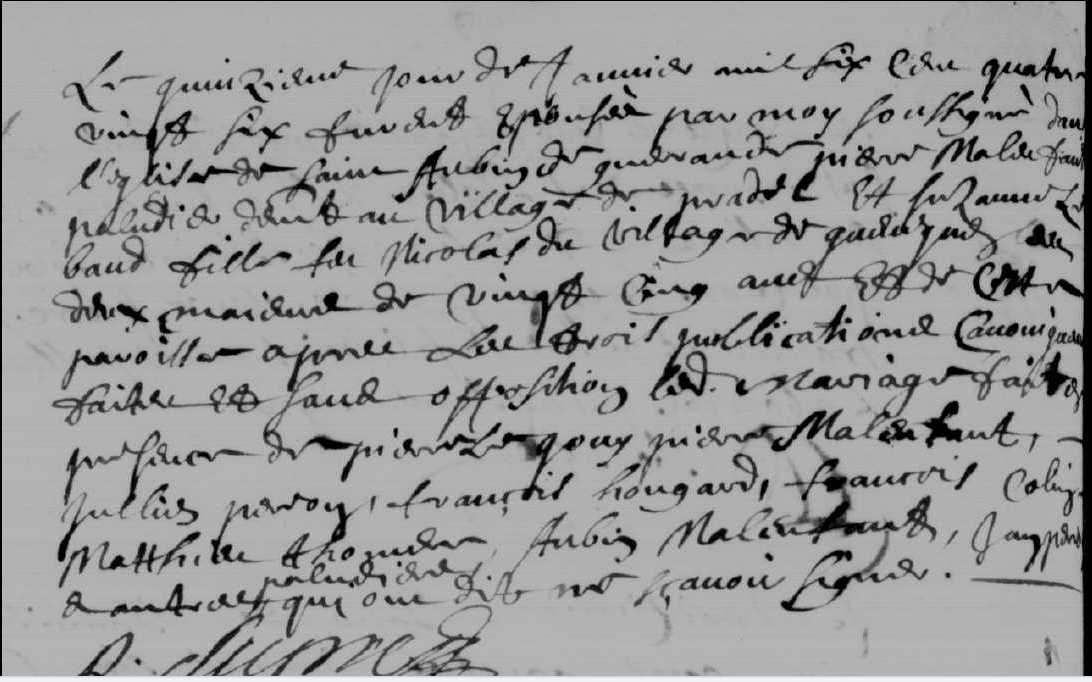 Le quinzieme jour de Janvier mil six cent quatre
vingt six furent Epousés par moy soussigné dans
l'eglise de saint Aubin de guerande pierre Malenfant
paludier demt au village de pradel Et suzanne Le
baud fille feu Nicolas du village de queniquen
deux majeurs de vingt cinq ans Et de Cette
paroisse apres Les trois publications Canoniques
faites Et sans opposition led. mariage fait en
presence de pierre Le gouy pierre Malenfant,
Jullien perron, françois hougard, francois Colin,
Matthieu thomere, Aubin Malenfant, Jan
paludiers
& autres qui ont dit ne sçavoir signer.